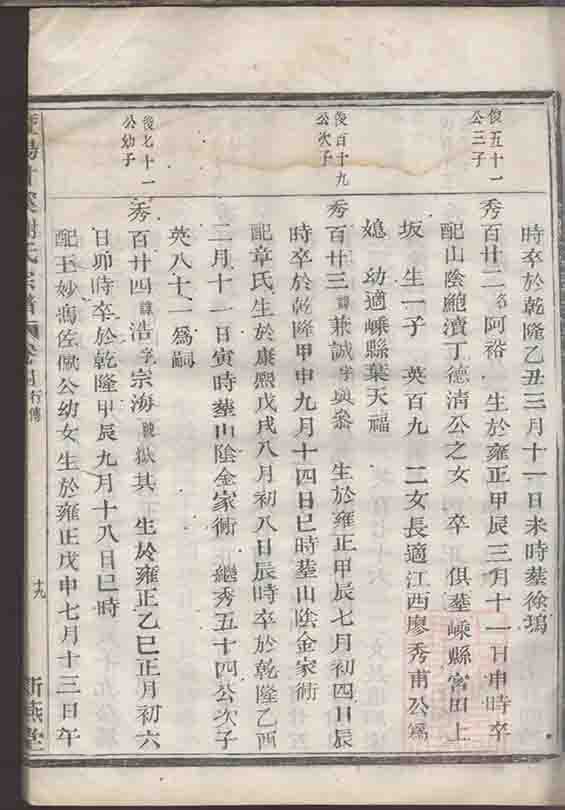 時卒於乾隆乙丑三月十一日未時墓徐塢
俊五十一
公三子
秀百廿二名阿裕 生於雍正甲辰三月十一日申時卒
配山陰鮑瀆丁德淸公之女 卒 俱墓嵊縣官田上
坂 生一子 英百九 二女長適江西廖秀甫公爲
媳 幼適嵊縣葉天福
俊百十九
公次子
秀百廿三諱兼誠字與叅 生於雍正甲辰七月初四日辰
時卒於乾隆甲申九月十四日巳時墓山陰金家衖
配章氏生於康熙戊戌八月初八日辰時卒於乾隆乙酉
二月十一日寅時墓山陰金家衖 繼秀五十四公次子
英八十一爲嗣
俊七十一
公幼子
秀百廿四諱浩字宗海號嶽其 生於雍正乙巳正月初六
日卯時卒於乾隆甲辰九月十八日巳時
配王妙馮佐猷公幼女生於雍正戊申七月十三日午
氏宗譜 行傳 十九